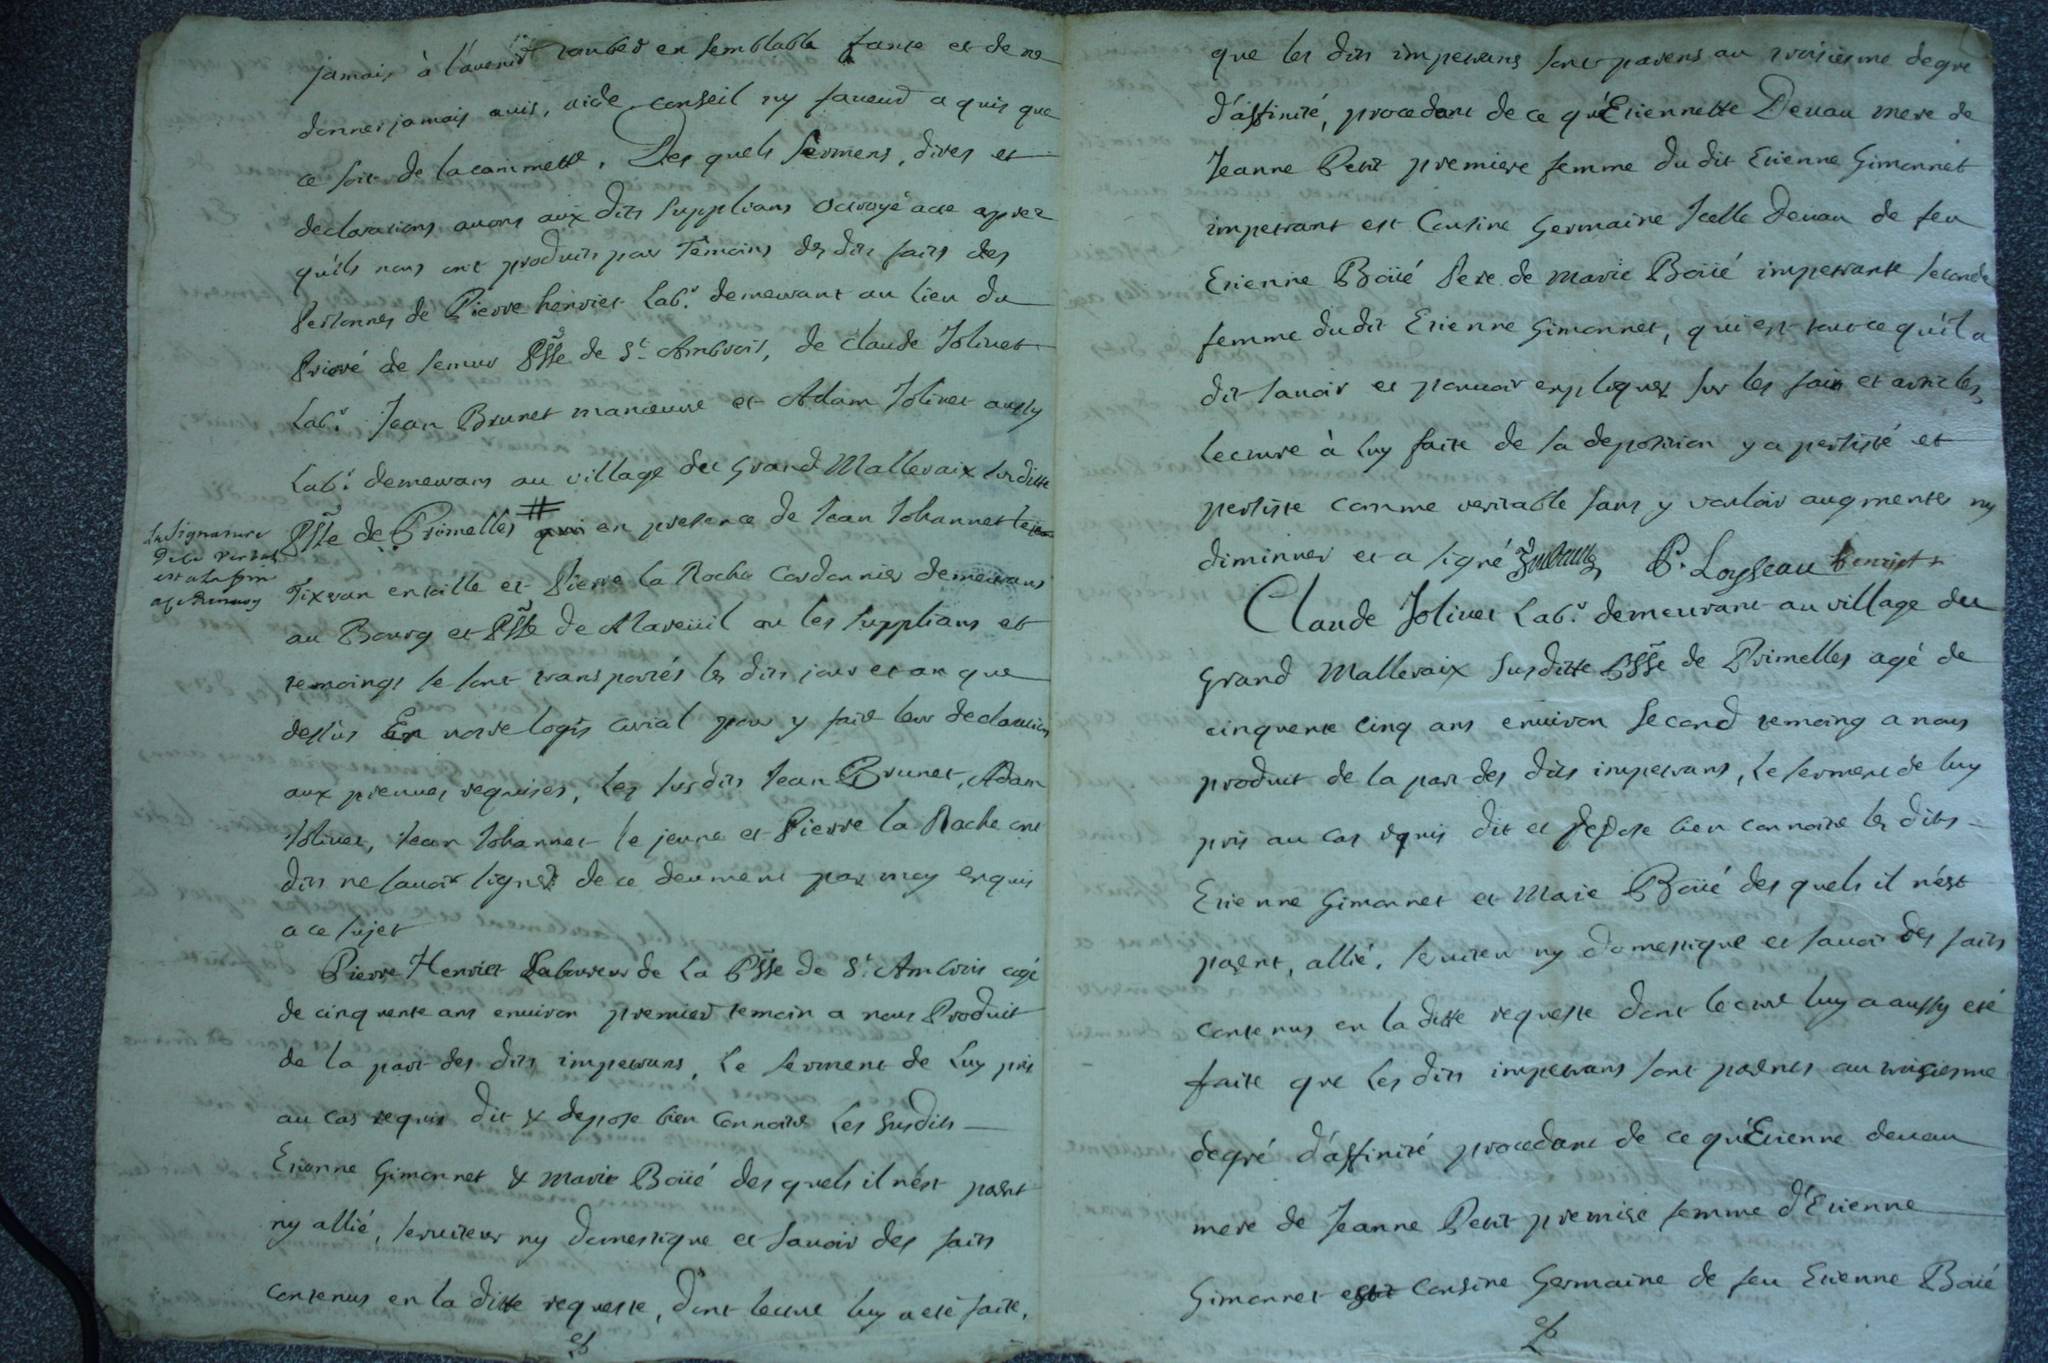 jamais à l'avenir tomber en semblable faute et de ne
donner jamais avis, aide, conseil ny faveur a quis que
ce soit de la commettre, Des quels sermens, dires et
declarations avons aux dits supplians octroyé acte apres
qu'ils nous ont produits par temoins des dits faits des
personnes de Pierre henriet Lab.r demeurant au lieu du
Prioré de semur PSSe de St. Ambrois, de Claude Jolivet
Lab.r Jean Brunet manoeuvre et Adam Jolivet aussy
Lab.r demeurans au village du Grand Malleraix susditte
PSSe de Primelles # en presence de Jean Johannet le jeu
Tixeran en toille et Pierre la Roche Cordonnier demeurans
au Bourg et PSSe de Mareüil ou les supplians et
temoings se sont transportés les dits jour et an que
dessus En notre logis curial pour y faire leur declaration
aux preuves requises, Les susdits Jean Brunet, Adam
Jolivet, Jean Johannet le jeune et Pierre la Roche ont
dits ne savoir signer de ce deument par moy enquis
a ce sujet
la signature
de la
est a la fin
Pierre Henriet Laboureur de La PSSe de St. Ambrois agé
de cinquente ans environ premier temoin a nous Produit
de la part des dits impetrans, Le serment de Luy pris
au cas requis dit & depose bien connoitre Les susdits
Etienne Gimonnet & Marie Boüé des quels il n'est parent
ny allié, serviteur ny domestique et savoir des faits
contenus en la ditte requeste, dont lecture luy a eté faite,
que les dits impetrans sont parens au troisiesme degré
d'affinité, procedant de ce qu'Etiennette Devau mere de
Jeanne Petit premiere femme du dit Etienne Gimonnet
impetrant est Cousine Germaine Icelle Devau de feu
Etienne Boüé Pere de Marie Boüé impetrante seconde
femme du dit Etienne Gimonnet, qui est tout ce qu'il a
dit savoir et pouvoir expliquer sur les faits et articles,
Lecture à luy faite de sa deposition y a persisté et
persiste comme veritable sans y vouloir augmenter ny
diminuer et a signé P. Loyseau henriet
Claude Jolivet Lab.r demeurant au village du
Grand Mallevaix susditte PSSe de Primelles agé de
cinquente cinq ans environ second temoing a nous
produit de la part des dits impetrans, Le serment de luy
pris au cas requis dit et depose bien connoitre les dits
Etienne Gimonnet et Marie Boüé des quels il n'est
parent, allié, serviteur ny domestique et savoir des faits
contenus en la ditte requeste dont lecture luy a aussy eté
faite que Les dits impetrans sont parents au troisiesme
degré d'affinité procedant de ce qu'Etienne devau
mere de Jeanne Petit premiere femme d'Etienne
Gimonnet est cousine Germaine de feu Etienne Boüé